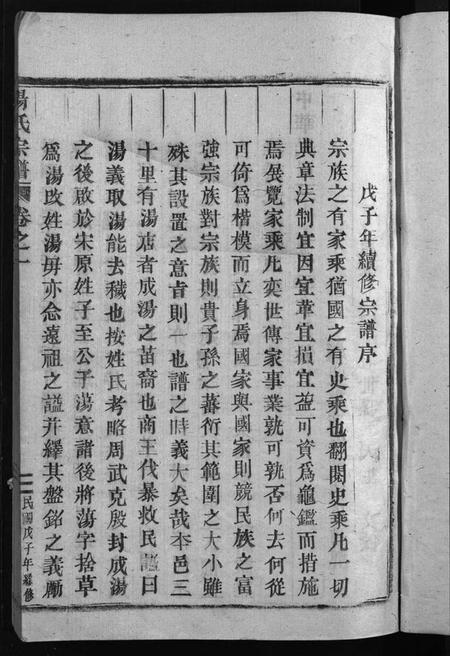 戊子年續修宗譜序
宗族之有家乘猶國之有史乘也翻閱史乘凡一切
典章法制宜因宜革宜損宜益可資爲龜鑑而措施
焉展覽家乘凡奕世傳家事業孰可孰否何去何從
可倚爲楷模而立身焉國家與國家則競民族之富
強宗族對宗族則貴子孫之蕃衍其範圍之大小雖
殊其設置之意旨則一也譜之時義大矣哉本邑三
十里有湯店者成湯之苗裔也商王伐暴救民諡曰
湯義取湯能去穢也按姓氏考略周武克殷封成湯
之後啟於宋原姓子至公子蕩意諸後將蕩字捨草
爲湯改姓湯毋亦念遠祖之諡并繹其盤銘之義勵
湯氏宗譜 卷之一
民國戊子年續修